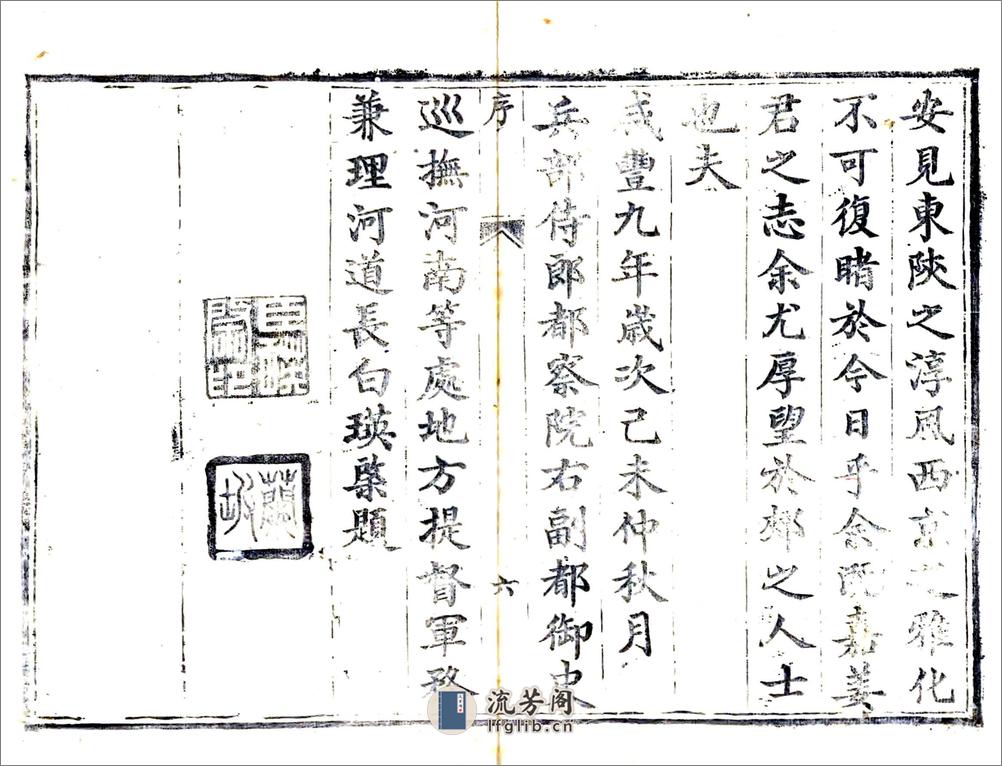 安見東陝之淳風西京之雅化
不可復睹於今日乎余既嘉姜
君之志余尤厚望於郟之人士
也夫
咸豐九年歲次己未仲秋月
兵部侍郎都察院右副都御史
序
六
巡撫河南等處地方提督軍務
兼理河道長白瑛棨題
蘭坡
流芳阁
lfglib.cn